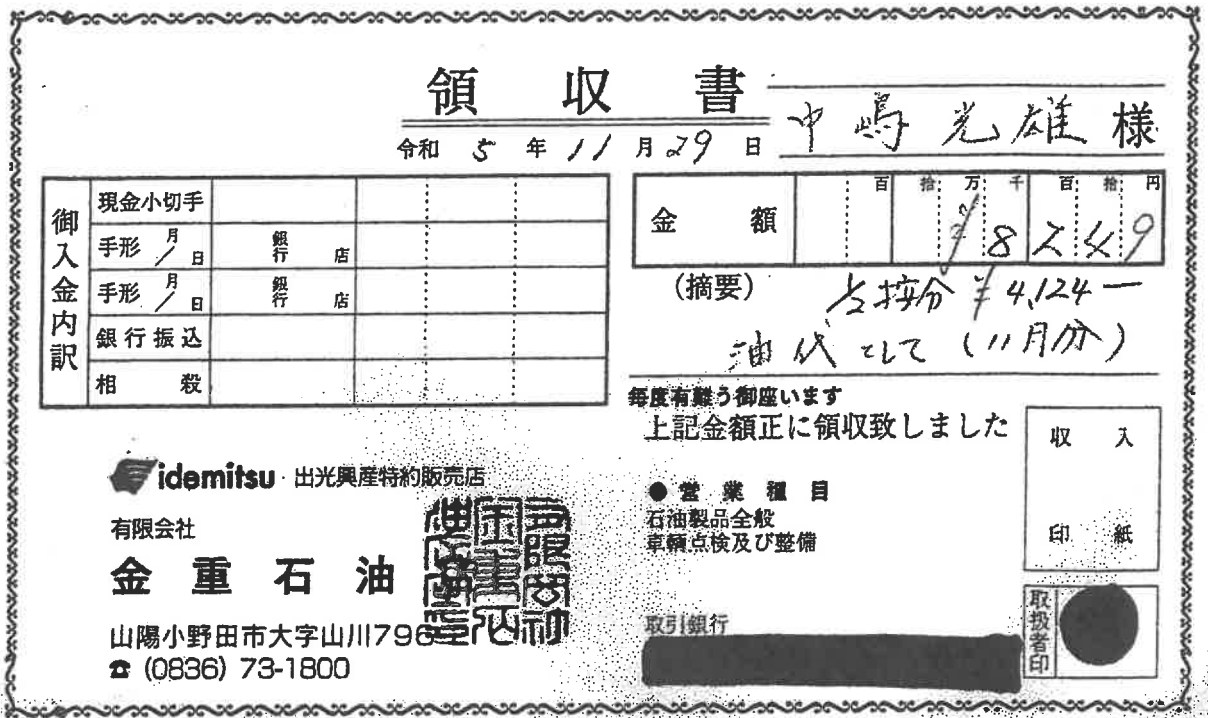 領収書
中嶋光雄 様
令和 5 年 11 月 29 日
御入金内訳
現金小切手
手形 月/日 銀行 店
手形 月/日 銀行 店
銀行振込
相殺
金額 百 拾 万 千 百 拾 円
¥8249
(摘要) 1/2按分 ¥4,124ー
油代として (11月分)
毎度有難う御座います
上記金額正に領収致しました
収入
印紙
idemitsu 出光興産特約販売店
有限会社
金重石油
山陽小野田市大字山川796
☎ (0836) 73-1800
●営業種目
石油製品全般
車輌点検及び整備
取引銀行
取扱者印